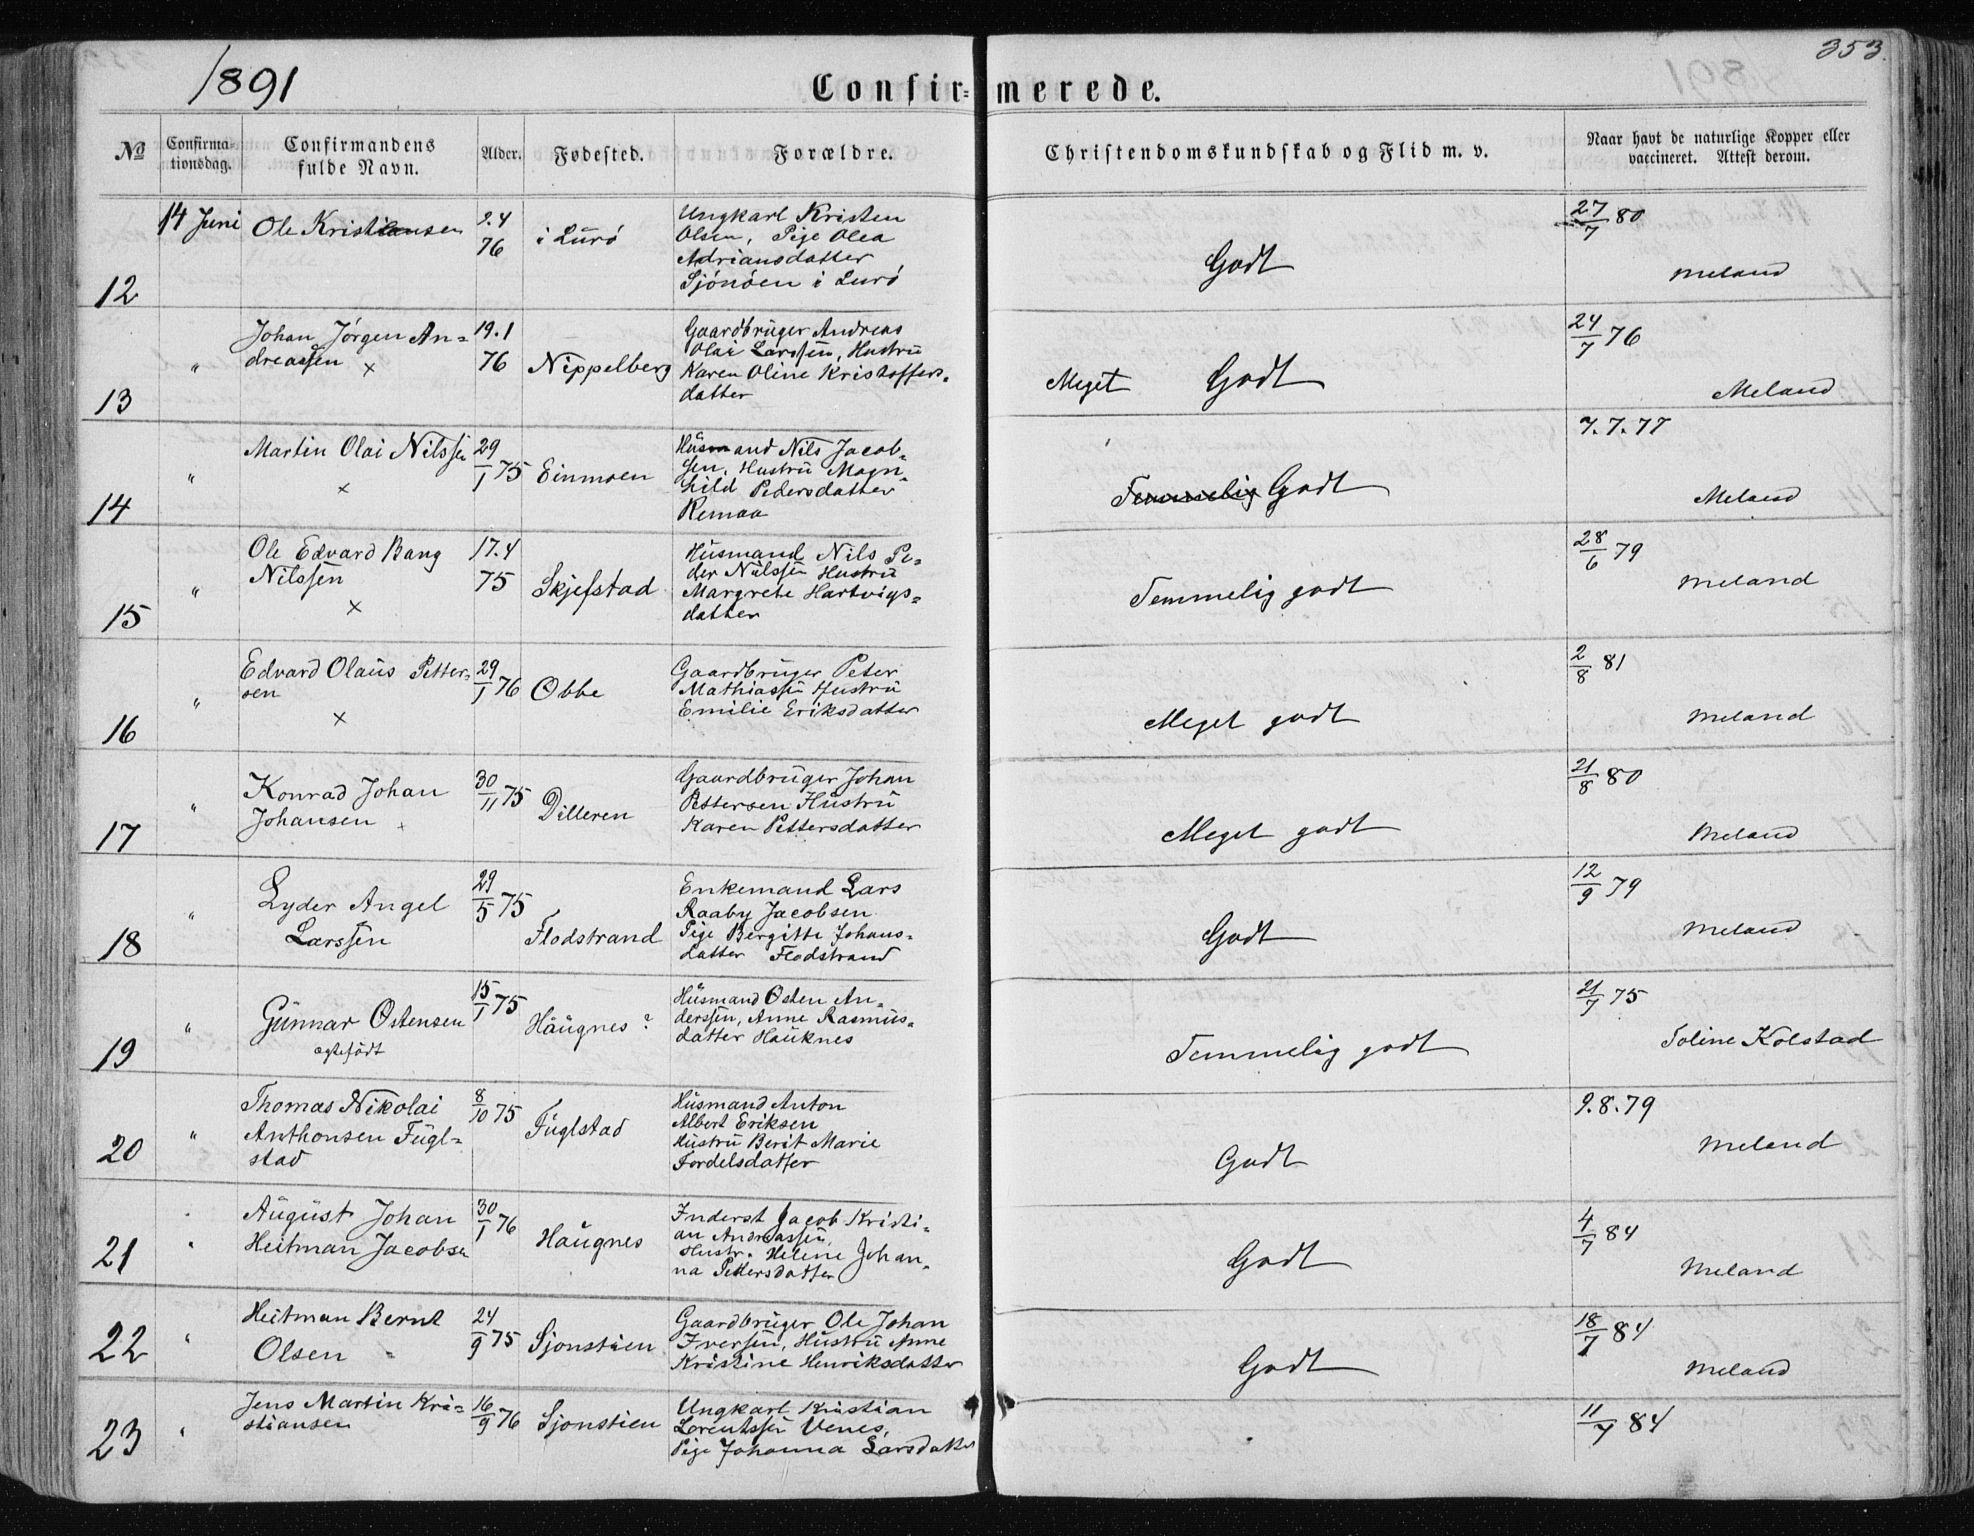 1891
353.
Confirmerede.
No
Confirmationsdag.
Confirmandens fulde Navn.
Alder.
Fødested.
Forældre.
Christendomskundskab og Flid m. v.
Naar havt de naturlige Kopper eller vaccineret. Attest derom.
12
14 Juni
Ole Kristiansen
2.4
76
i Lurö
Ungkarl Kristen
Olsen, Pige Olea
Adriansdatter
Sjönöen i Lurö
Godt
27/7 80
Meland
13
"
Johan Jörgen An=
dreassen ×
19.1
76
Nippelberg
Gaardbrüger Andreas
Olai Larssen, Hustrü
Karen Oline Kristoffers=
datter
Meget Godt
24/7 76
Meland
14
"
Martin Olai Nilssen
×
29/1 75
Einmoen
Hüsmand Nils Jacob=
sen, Hustrü Magn=
hild Pedersdatter
Remaa
Temmelig Godt
7.7.77
Meland
15
"
Ole Edvard Bang
Nilssen
×
17.4
75
Skjefstad
Hüsmand Nils Pe=
der Nilssen Hustrü
Margrete Hartvigs=
datter
Temmelig godt
28/6 79
Meland
16
"
Edvard Olaüs Petter=
sen
×
29/1 76
Obbe
Gaardbrüger Peter
Mathiassen Hustrü
Emilie Eriksdatter
Meget godt
2/8 81
Meland
17
"
Konrad Johan
Johansen ×
30/11 75
Dilleren
Gaardbrüger Johan
Pettersen Hüstrü
Karen Pettersdatter
Meget godt
21/8 80
Meland
18
"
Lyder Angel
Larssen
29/5 75
Flodstrand
Enkemand Lars
Raaby Jacobsen
Pige Bergitte Johans=
datter Flodstrand
Godt
12/9 79
Meland
19
"
Günnar Ostensen
egtefödt
15/1 75
Häügnes ?
Hüsmand Osten An=
derssen, Anne Rasmüs=
datter Haüknes
Temmelig godt
21/7 75
Toline Kolstad
20
"
Thomas Nikolai
Anthonsen Fügl=
stad
8/10 75
Füglstad
Hüsmand Anton
Albert Eriksen
Hüstrü Berit Marie
Tordelsdatter
Godt
9.8.79
Meland
21
"
Aügüst Johan
Heitman Jacobsen
30/1 76
Haügnes
Inderst Jacob Kristi=
an Andreassen,
Hustr. Helene Johan=
na Pettersdatter
Godt
4/7 84
Meland
22
"
Heitman Bernt
Olsen
24/9 75
Sjonstien
Gaardbrüger Ole Johan
Iversen, Hüstrü Anne
Kristine Henriksdatter
Godt
18/7 84
Meland
23
"
Jens Martin Kri=
stiansen
16/9 76
Sjonstien
Ungkarl Kristian
Lorentssen Venes,
Pige Johanna Larsdatter
11/7 84